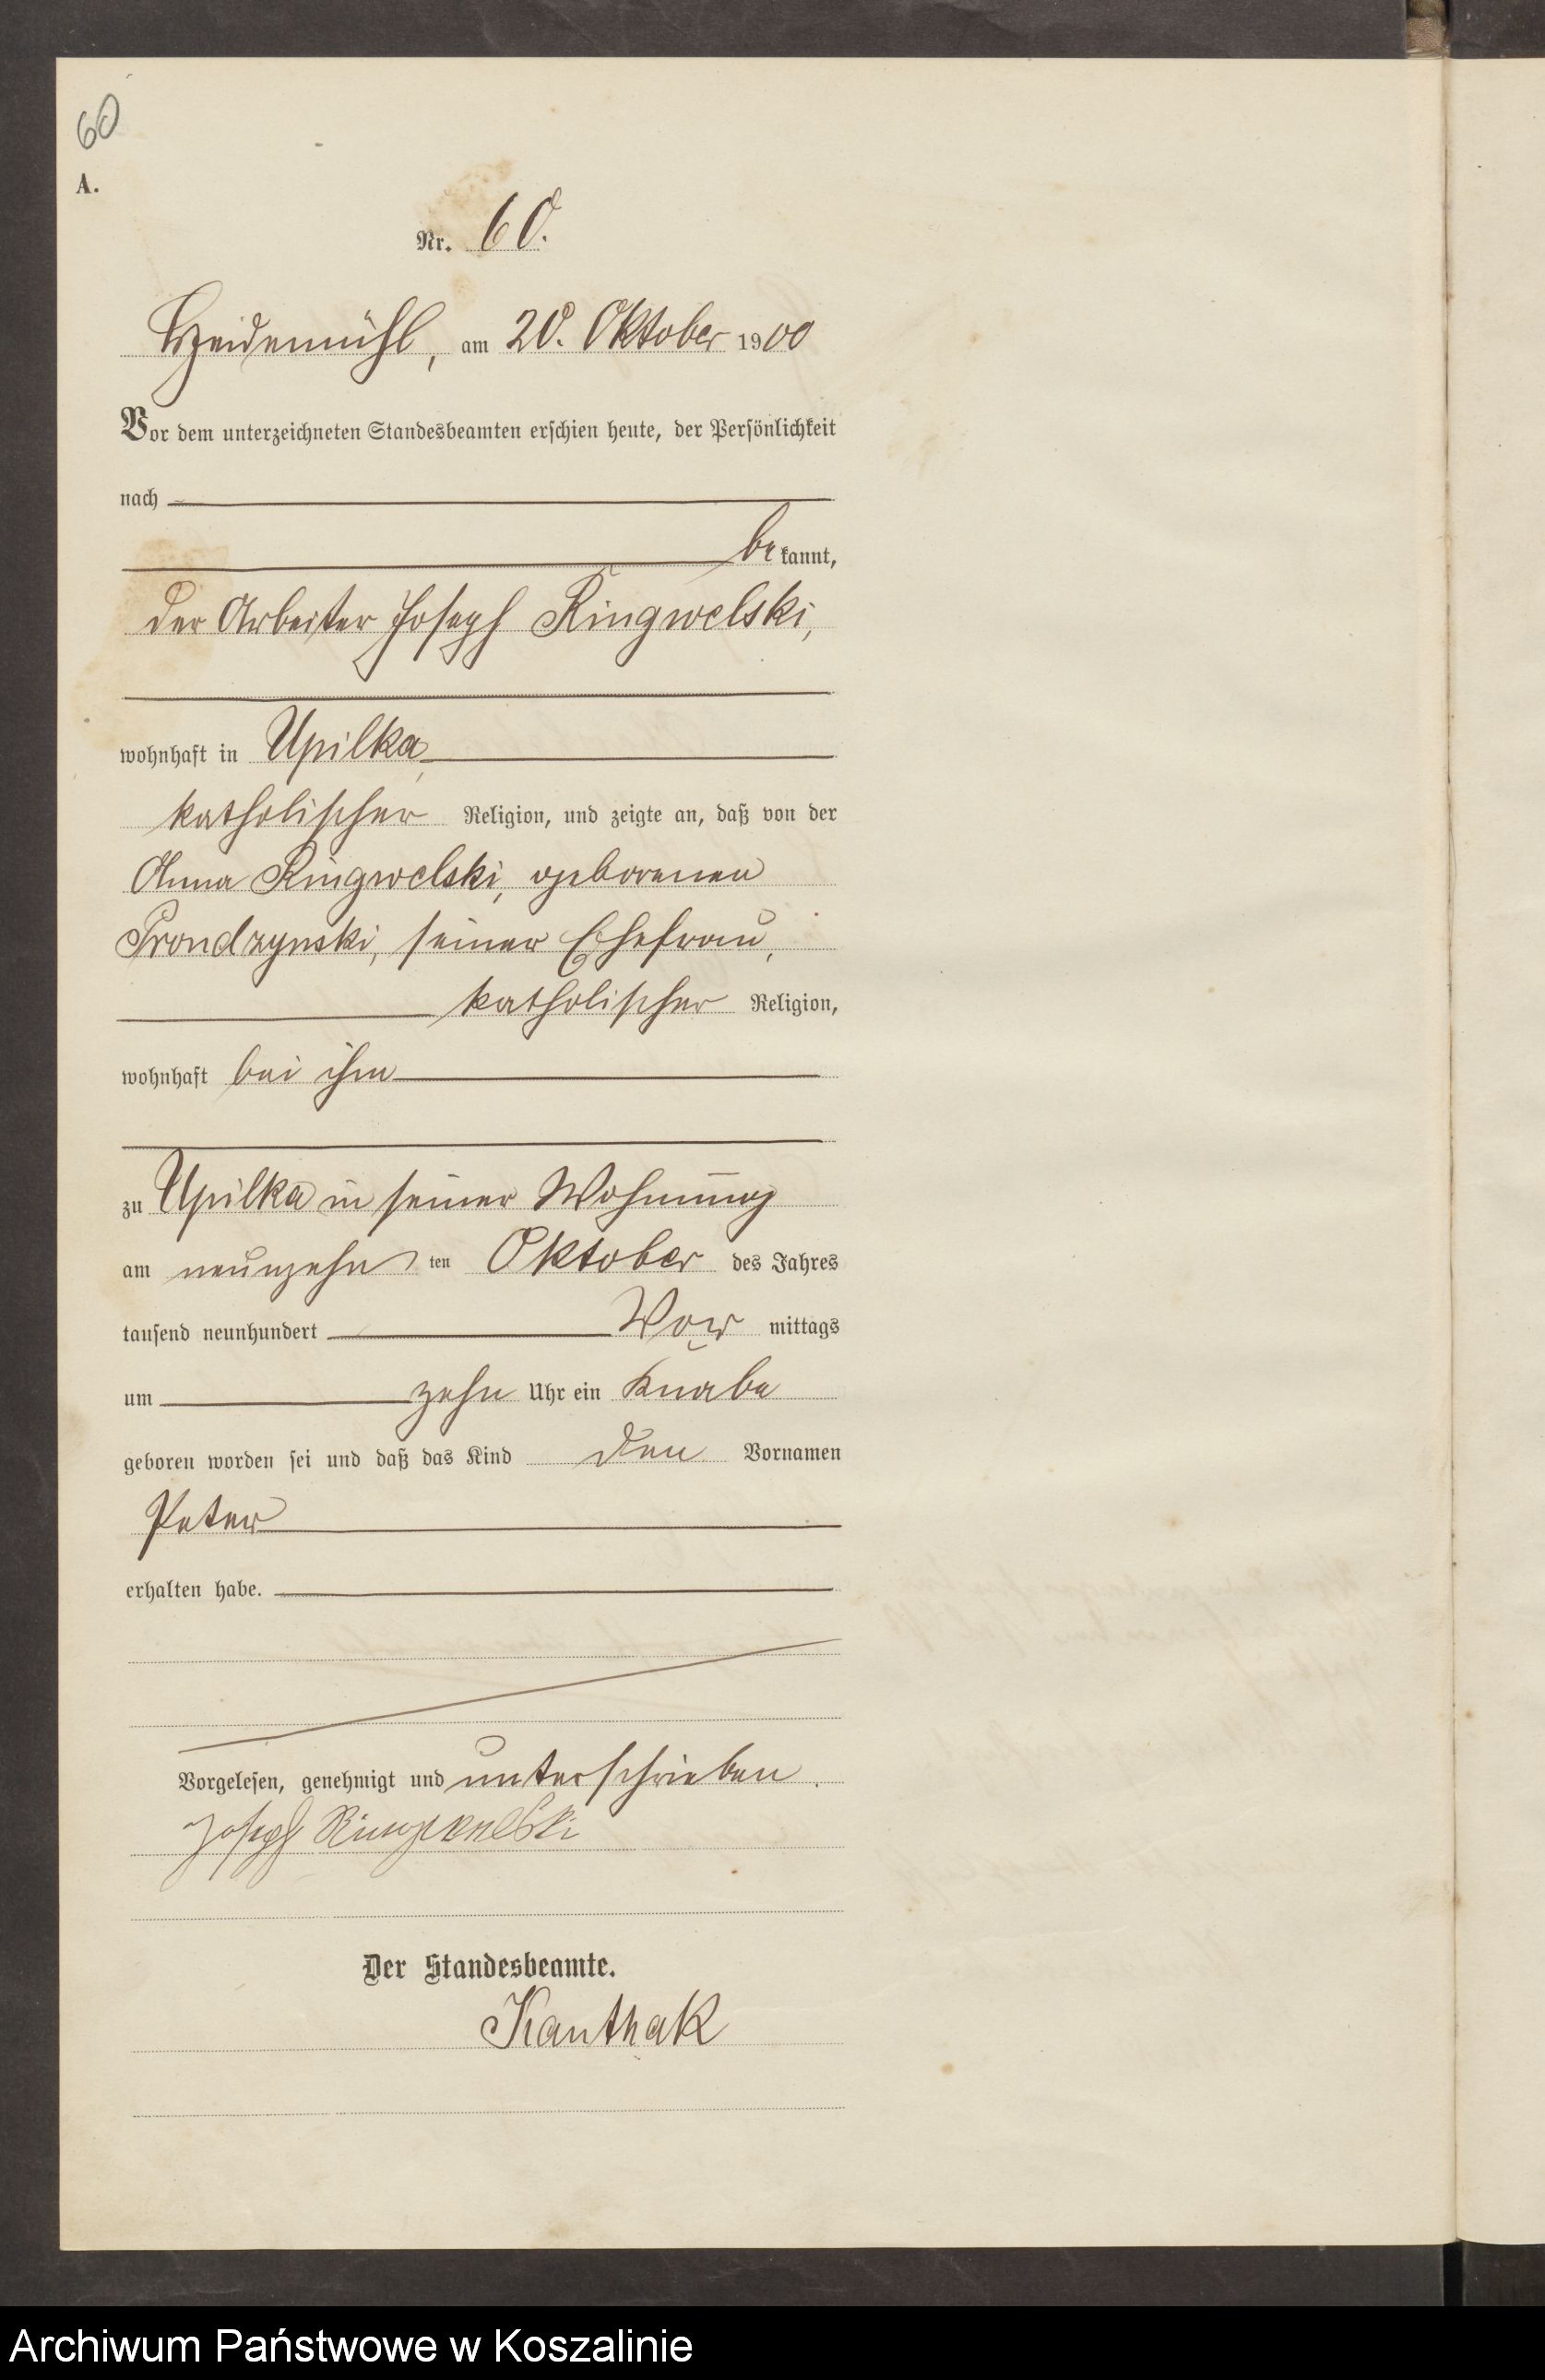 60
A.
Nr. 60.
Heidemühl, am 20. Oktober 1900
Vor dem unterzeichneten Standesbeamten erschien heute, der Persönlichkeit
nach
be kannt,
der Arbeiter Joseph Ringwelski,
wohnhaft in Upilka,
katholischer Religion, und zeigte an, daß von der
Anna Ringwelski, geborenen
Prondzynski, seiner Ehefrau,
katholischer Religion,
wohnhaft bei ihm
zu Upilka in seiner Wohnung
am neunzehn ten Oktober des Jahres
tausend neunhundert Vor mittags
um zehn Uhr ein Knabe
geboren worden sei und daß das Kind den Vornamen
Peter
erhalten habe.
Vorgelesen, genehmigt und unterschrieben.
Joseph Ringwelski
Der Standesbeamte.
Kanthak
Archiwum Państwowe w Koszalinie